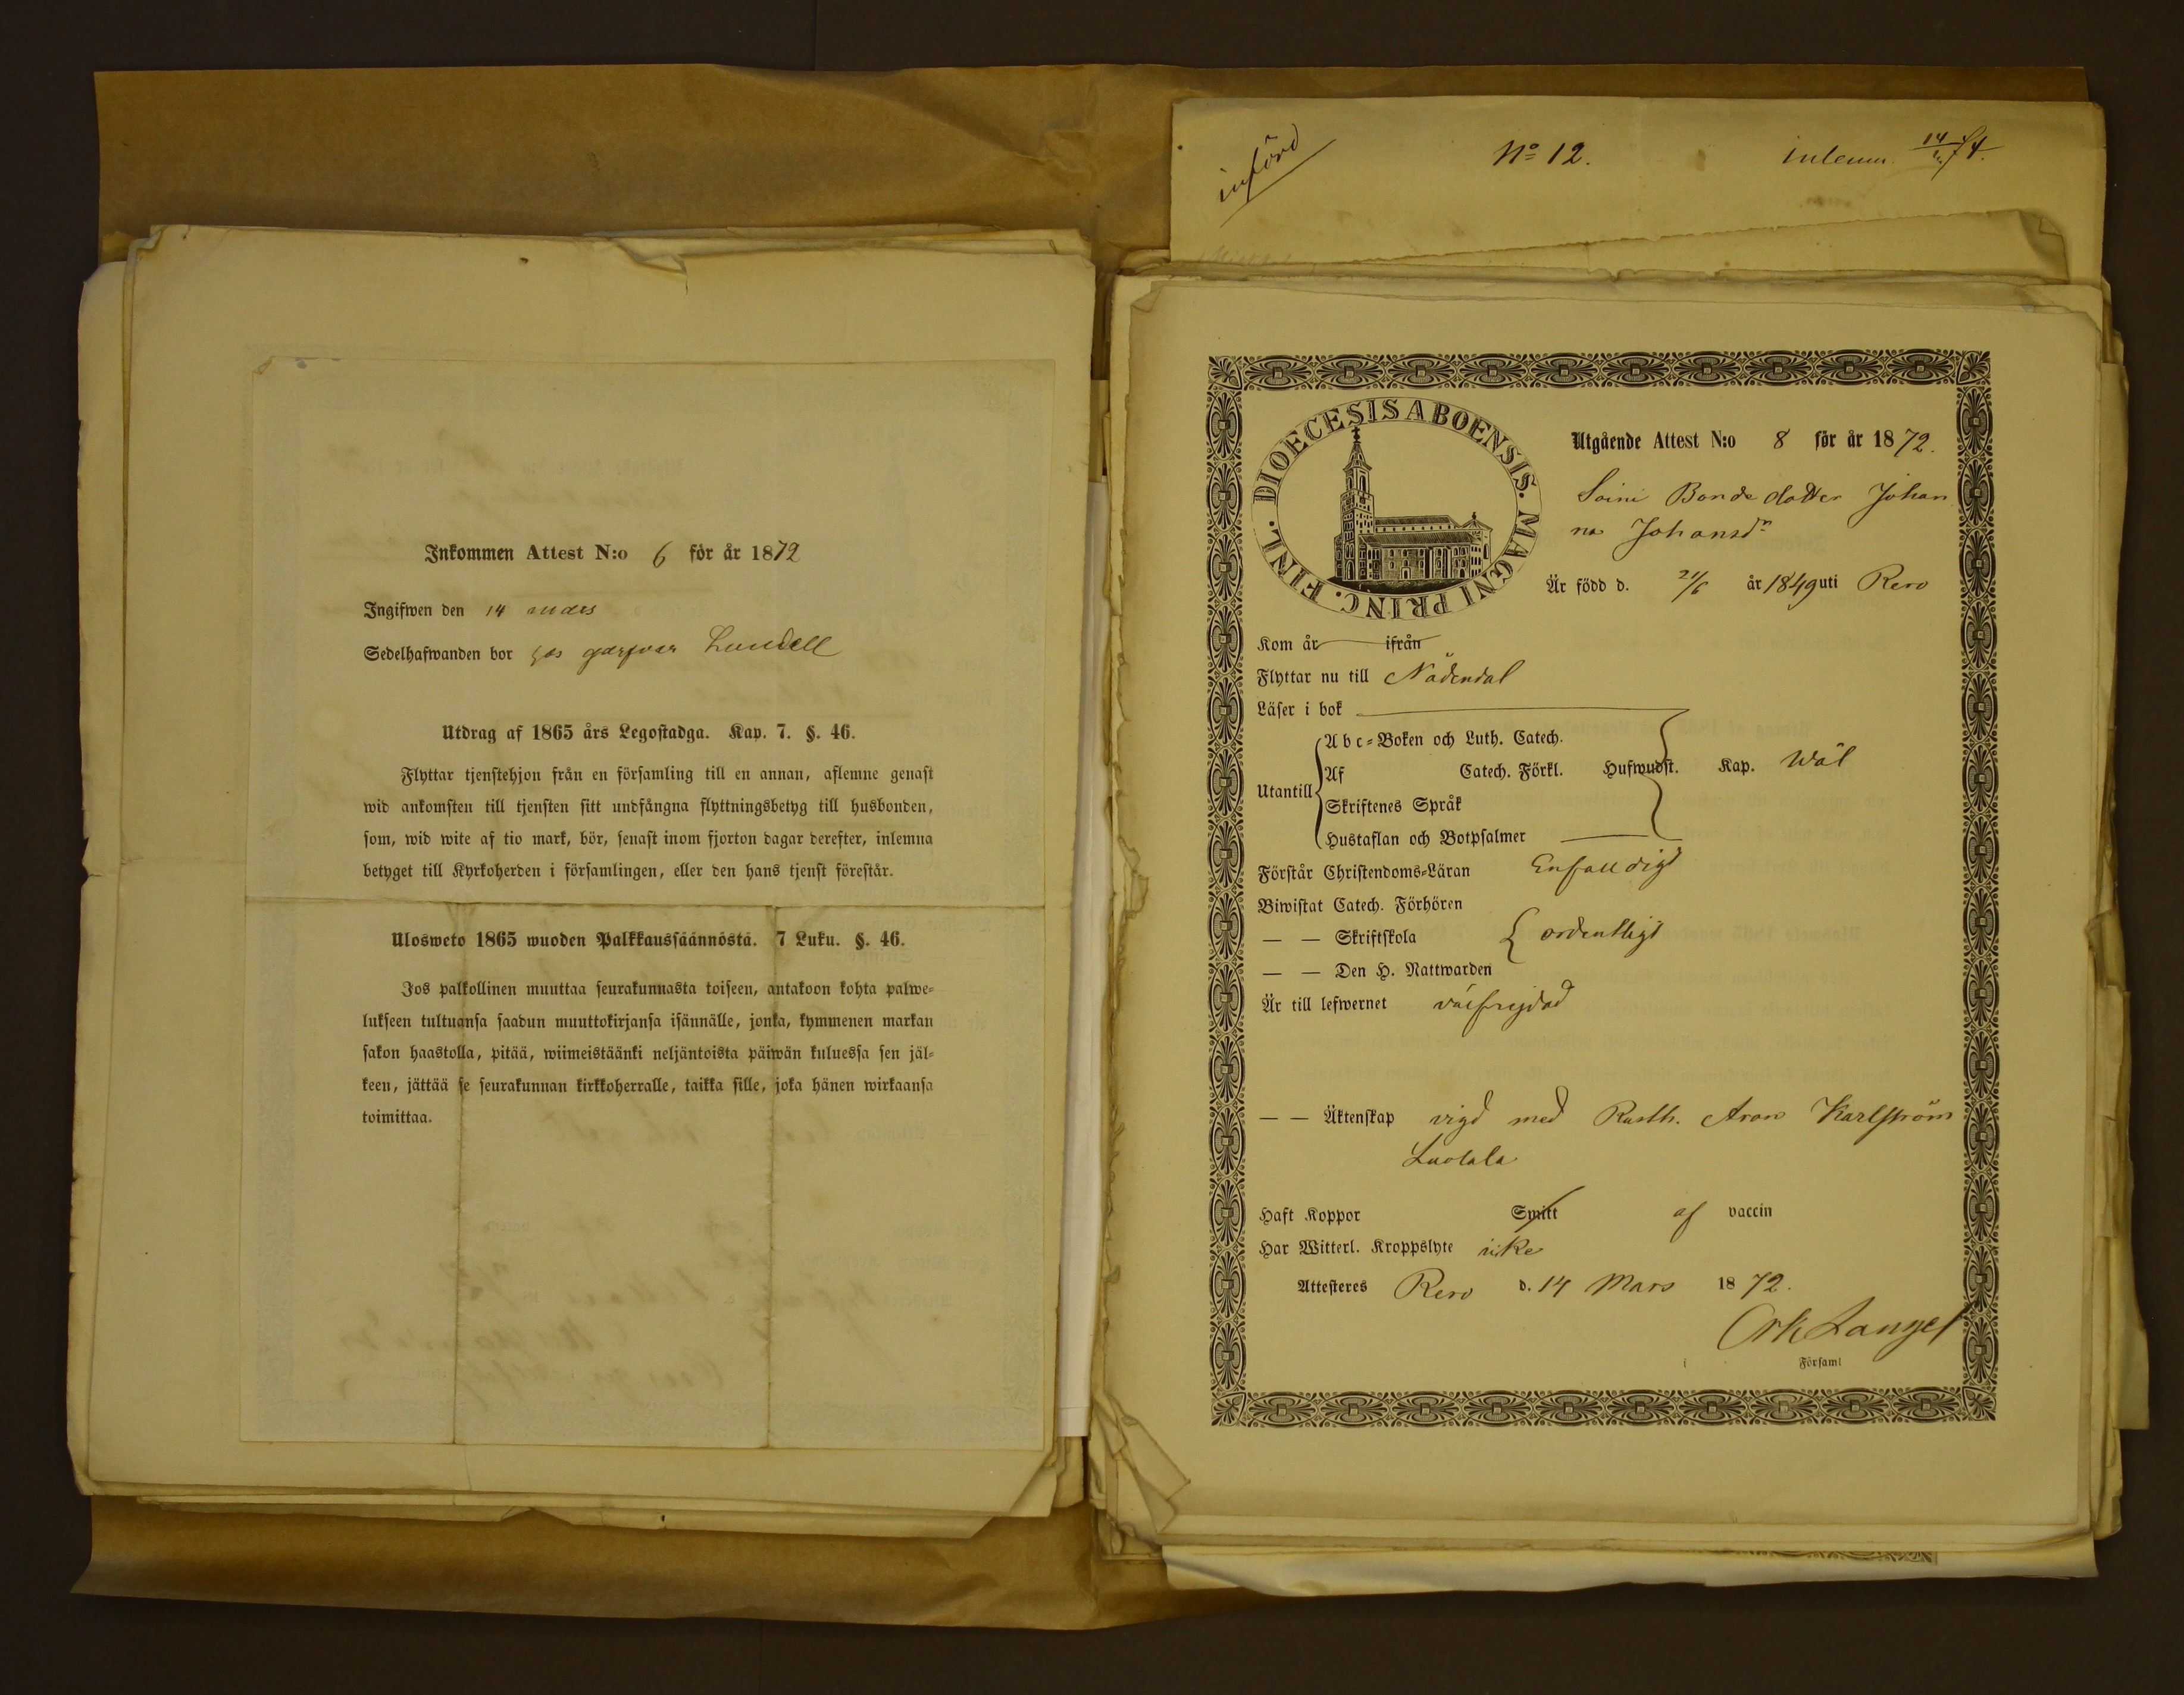 Inkommen Attest N:o 6 för år 1872
Ingifwen den 14 mars
Sedelhafwanden bor hos garfvar Lundell
Utdrag af 1865 års Legostadga. Kap. 7. §. 46.
Flyttar tjenstehjon från en församling till en annan, aflemne genast
wid ankomsten till tjensten sitt undfångna flyttningsbetyg till husbonden,
som, wid wite af tio mark, bör, senast inom fjorton dagar derefter, inlemna
betyget till Kyrkoherden i församlingen, eller den hans tjenst förestår.
Ulosweto 1865 wuoden Palkkaussäännöstä. 7 Luku. §. 46.
Jos palkollinen muuttaa seurakunnasta toiseen, antakoon kohta palwe-
lukseen tultuansa saadun muuttokirjansa isännälle, jonka, kymmenen markan
sakon haastolla, pitää, wiimeistäänki neljäntoista päiwän kuluessa sen jäl-
keen, jättää se seurakunnan kirkkoherralle, taikka sille, joka hänen wirkaansa
toimittaa.
införd
No 12.
inlemn. 14/ 74.
DIOECESIS ABOENSIS. MAGNI PRINC. FINL.
Utgående Attest N:o 8 för år 1872.
Soini Bondedotter Johan
na Johansdr
Är född d. 21/6 år 1849 uti Rero
Kom år ifrån
Flyttar nu till Nådendal
Läser i bok
Utantill
Abc-Boken och Luth. Catech.
Af Catech. Förkl. Hufwudst. Kap. Wäl
Skriftenes Språk
Hustaflan och Botpsalmer
Förstår Christendoms-Läran Enfaldigt
Biwistat Catech. Förhören
— — Skriftskola ordentligt
— — Den H. Nattwarden
Är till lefwernet välfrejdad
— — Äktenskap vigd med Rusth. Aron Karlström
Luolala
Haft Koppor Smitt af vaccin
Har Witterl. Kroppslyte icke
Attesteres Rero d. 14 Mars 1872.
Ork Langel
i Församl